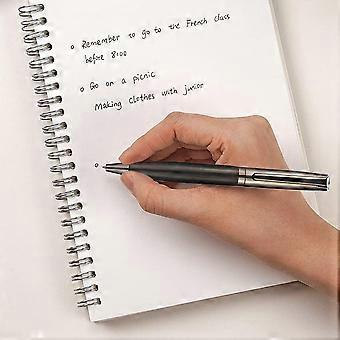 Remember to go to the French class
before 8:00
Go on a picnic
Making clothes with junior